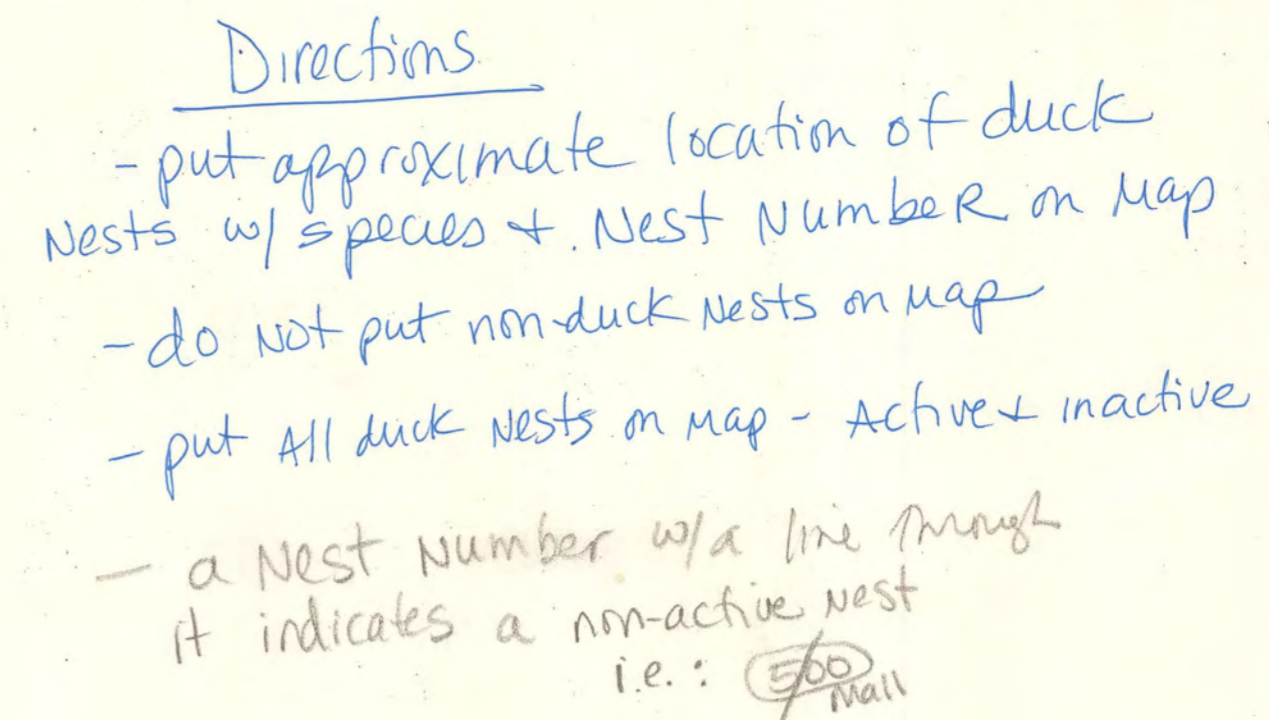 Directions
- put approximate location of duck
Nests w/ species + Nest Number on Map
- do Not put non-duck Nests on Map
- put All duck Nests on Map - Active + inactive
- a Nest Number w/a line through
it indicates a non-active Nest
i.e.: 500
Mall